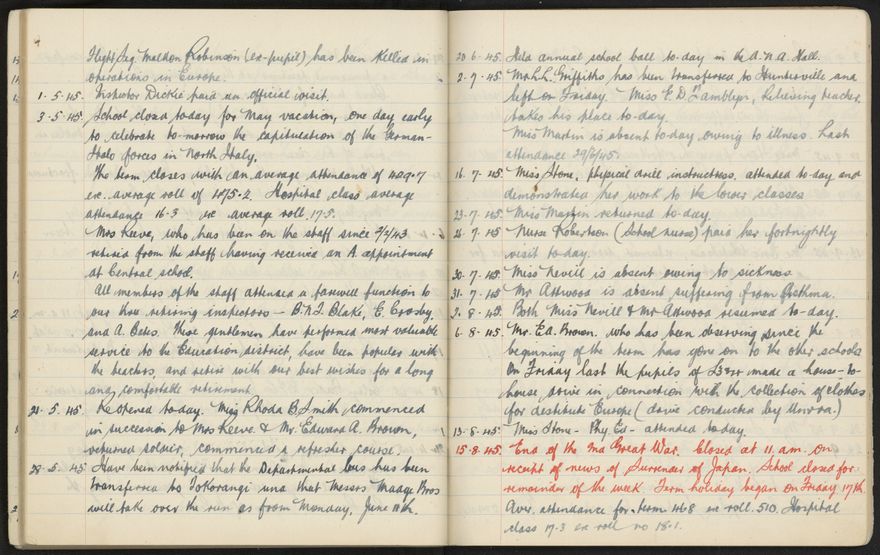 Flight Sig Maldon Robinson (ex-pupil) has been killed in
operations in Europe.
1. 5. 45. Inspector Dickie paid an official visit.
3. 5. 45. School closed today for May vacation, one day early
to celebrate to-morrow the capitulation of the German-
Italo forces in North Italy.
The term closes with an average attendance of 429.7
ex. average roll of 475.2. Hospital class average
attendance 16.3 ex average roll 17.5.
Mrs Keeve, who has been on the staff since 2/2/43
retired from the staff having received an A appointment
at Central school.
All members of the staff attended a farewell function to
our three retiring inspectors - B.N.T. Blake, E. Crosby,
and A. Bates. These gentlemen have performed most valuable
service to the Education district, have been popular with
the teachers, and retire with our best wishes for a long
and comfortable retirement.
21. 5. 45. Re opened to-day. Miss Rhoda B. Smith commenced
in succession to Mrs Keeve & Mr. Edward A. Brown,
returned soldier, commenced a refresher course.
28. 5. 45 Have been notified that the Departmental bus has been
transferred to Tokorangi and that Messrs Madge Bros
will take over the run as from Monday, June 11th.
20 6. 45. Held annual school ball to-day in the A.N.A. Hall.
2. 7. 45. Mr L.L. Griffiths has been transferred to Hunterville and
left on Friday. Miss E. D. Tamblyn, Relieving teacher,
takes his place to-day.
Miss Martin is absent to-day owing to illness. Last
attendance 29/6/45.
16. 7. 45. Miss Stone, physical drill instructress, attended to-day and
demonstrated her work to the lower classes
23. 7. 45. Miss Martin returned to-day.
26. 7. 45. Nurse Robertson (School nurse) paid her fortnightly
visit to-day.
30. 7. 45. Miss Nevill is absent owing to sickness.
31. 7. 45 Mr Attwood is absent suffering from Asthma.
2. 8. 45. Both Miss Nevill & Mr Attwood resumed to-day.
6. 8. 45. Mr. E.A. Brown, who has been observing since the
beginning of the term has gone on to the other schools
On Friday last the pupils of made a house-to-
house drive in connection with the collection of clothes
for destitute Europe (drive conducted by Unrra.)
13. 8. 45. Miss Stone - Phy Ed - attended to-day.
15. 8. 45. End of the 2nd Great War. Closed at 11. a.m. on
receipt of news of Surrender of Japan. School closed for
remainder of the week. Term holiday began on Friday 17th.
Aver. attendance for term 468 ex roll 510. Hospital
class 17.3 ex roll no 18.1.